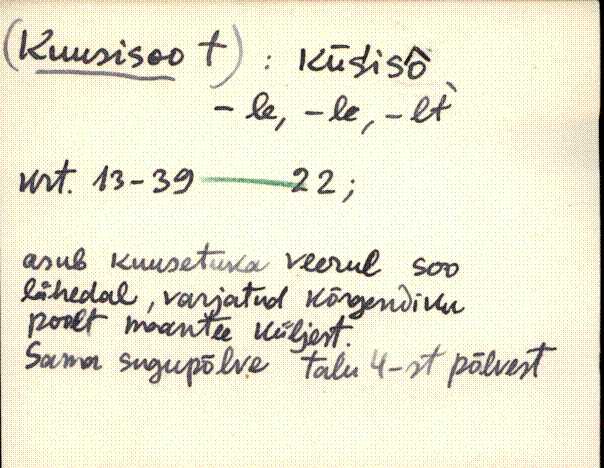 (Kuusisoo t) : Kūsisō
-le, -le, -lt
krt. 13-39 — 22;
asub kuusetuka veerul soo
lähedal, varjatud kõrgendiku
poolt maantee küljest.
Sama sugupõlve talu 4-st põlvest